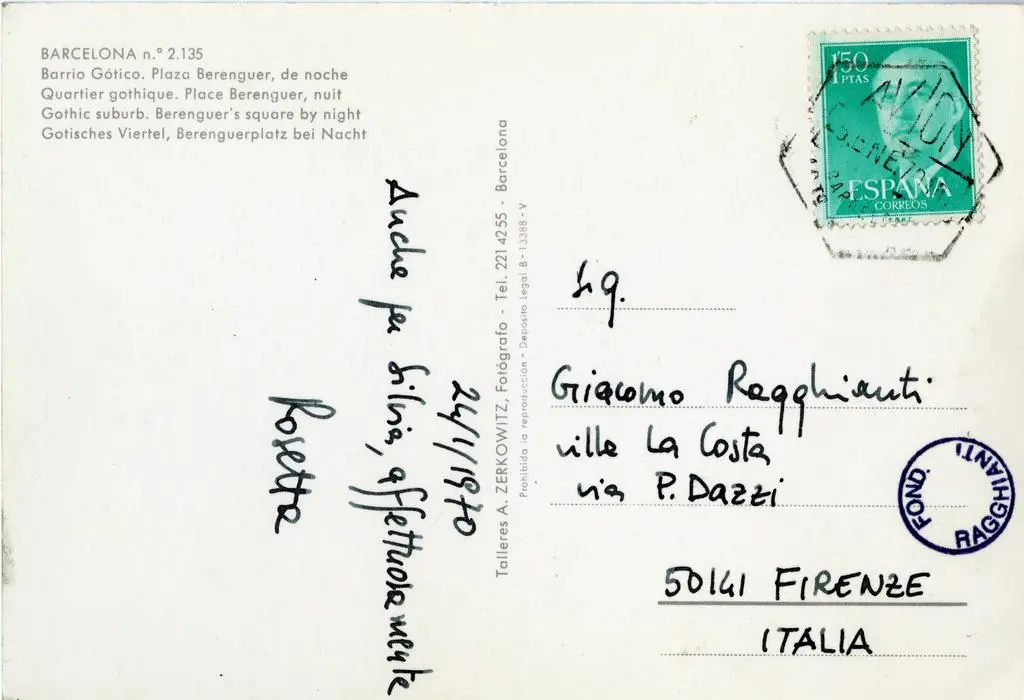 BARCELONA n.° 2.135
Barrio Gótico. Plaza Berenguer, de noche
Quartier gothique. Place Berenguer, nuit
Gothic suburb. Berenguer's square by night
Gotisches Viertel, Berenguerplatz bei Nacht
24/1/1970
Anche per Silvia, affettuosamente
Rosetta
Talleres A. ZERKOWITZ, Fotógrafo - Tel. 221 42 55 - Barcelona
Prohibida la reproducción - Depósito Legal B-13388-V
1'50
PTAS
AVION
ESPAÑA
CORREOS
Sig.
Giacomo Ragghianti
ville La Costa
via P. Dazzi
50141 FIRENZE
ITALIA
FOND. RAGGHIANTI